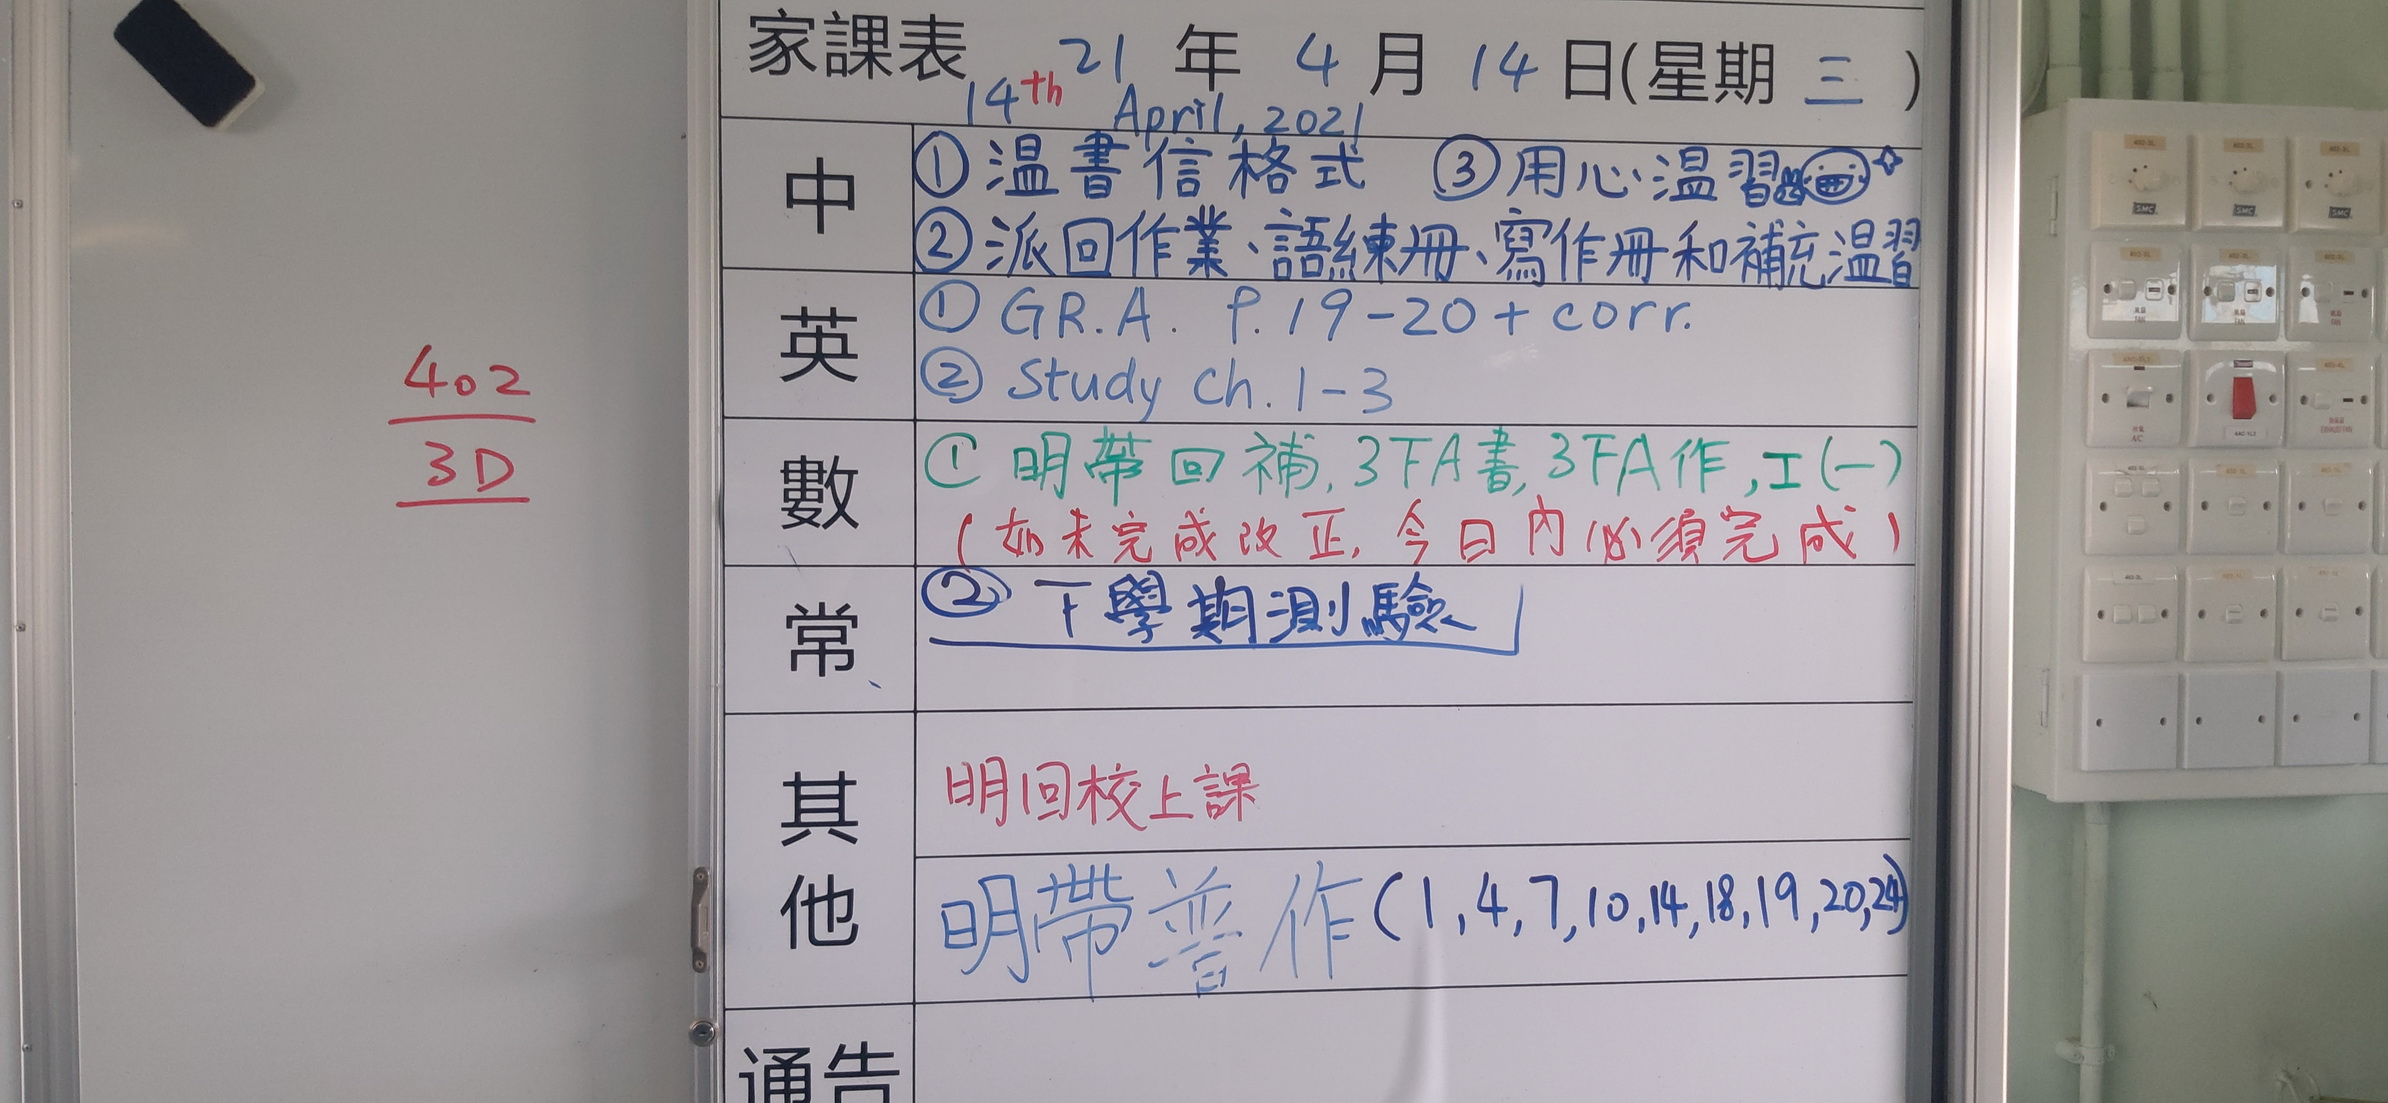 家課表 21 年 4 月 14 日(星期 三 )
14th April, 2021
中
① 温書信格式 ③ 用心温習
② 派回作業、語練冊、寫作冊和補充温習
英
① GR.A. P.19-20 + corr.
② Study Ch. 1-3
數
① 明帶回補, 3下A書, 3下A作, 工(一)
(如未完成改正, 今日內必須完成)
常
② 下學期測驗
其他
明回校上課
明帶普作(1, 4, 7, 10, 14, 18, 19, 20, 24)
通告
402
3D
SMC
SMC
SMC